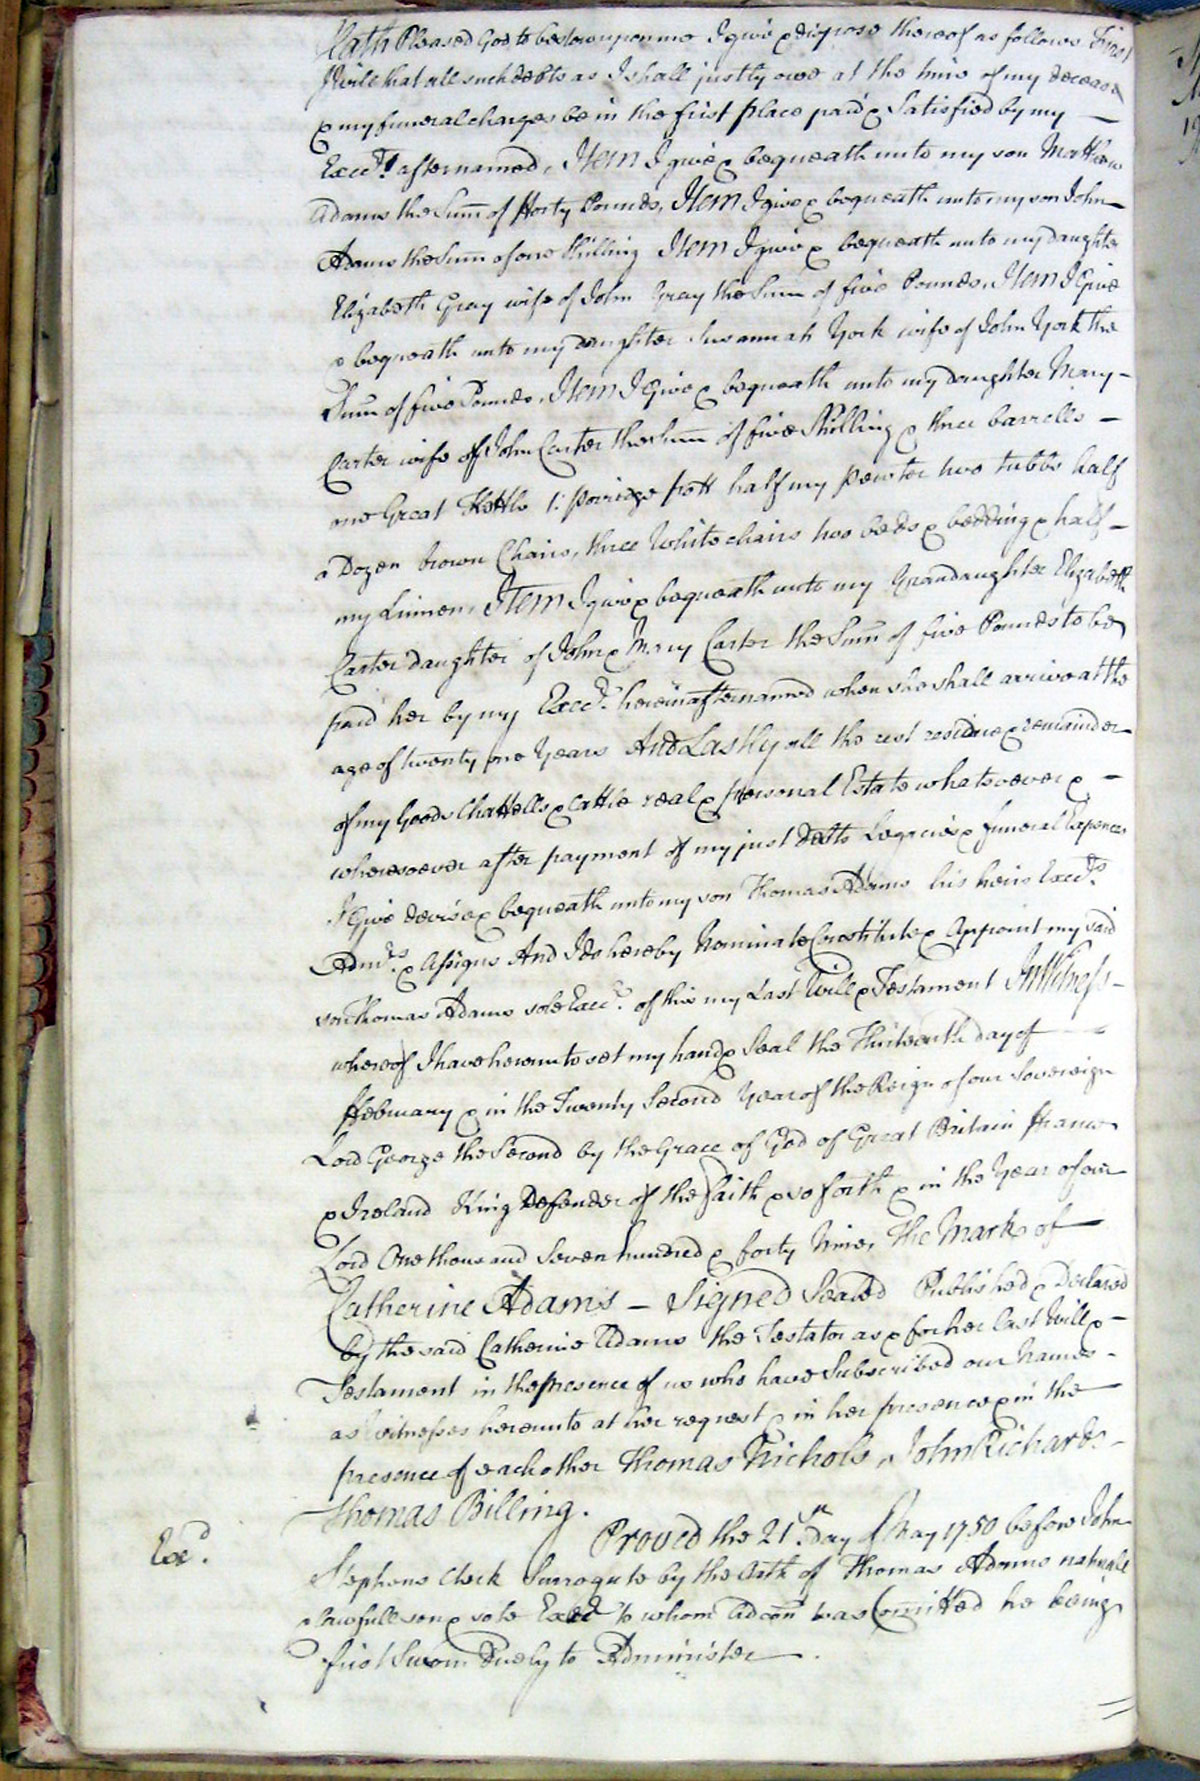 Hath Pleased God to bestow upon me I give & dispose thereof as follows First
I will that all such debts as I shall justly owe at the time of my decease
& my funeral charges be in the first place paid & Satisfied by my —
Execr. afternamed, Item I give & bequeath unto my son Matthew
Adams the Sum of fforty Pounds, Item I give & bequeath unto my son John
Adams the Sum of one Shilling Item I give & bequeath unto my daughter
Elizabeth Gray wife of John Gray the Sum of five Pounds, Item I Give
& bequeath unto my daughter Susannah York wife of John York the
Sum of five Pounds, Item I Give & bequeath unto my daughter Mary –
Carter wife of John Carter the Sum of five Shilling & three barrells –
one Great Kettle 1: porridge pott half my pewter two tubbs half
a Dozen brown Chairs, three White chairs two beds & bedding & half –
my Linnen, Item I give & bequeath unto my Grandaughter Elizabeth
Carter daughter of John & Mary Carter the Sum of five Pounds to be
paid her by my Execr. hereinafternamed when she shall arrive at the
age of twenty one Years And Lastly all the rest residue & remainder
of my Goods Chattells & Cattle real & personal Estate whatsoever & –
wheresoever after payment of my just debts Legacies & funeral Expences
I Give devise & bequeath unto my son Thomas Adams his heirs Execrs.
Admrs. & Assigns And I do hereby Nominate Constitute & Appoint my said
son Thomas Adams sole Execr. of this my Last Will & Testament In Witness –
whereof I have hereunto set my hand & Seal the Thirteenth day of —
ffebruary & in the Twenty Second Year of the Reign of our Sovereign
Lord George the Second by the Grace of God of Great Britain ffrance
& Ireland King Defender of the faith & so forth & in the Year of our
Lord One thousand Seven hundred & forty Nine, The Mark of —
Catherine Adams – Signed Sealed Published & Declared
by the said Catherine Adams the Testator as & for her last Will & –
Testament in the presence of us who have Subscribed our Names –
as Witnesses hereunto at her request & in her presence & in the
presence of each other Thomas Nichols, John Richards –
Thomas Billing.
Exd.
Proved the 21st. Day of May 1750 before John
Stephens Clerk Surrogate by the Oath of Thomas Adams natural
& lawfull son & sole Execr to whom Adcon was Comitted he being
first Sworn Duely to Administer —.